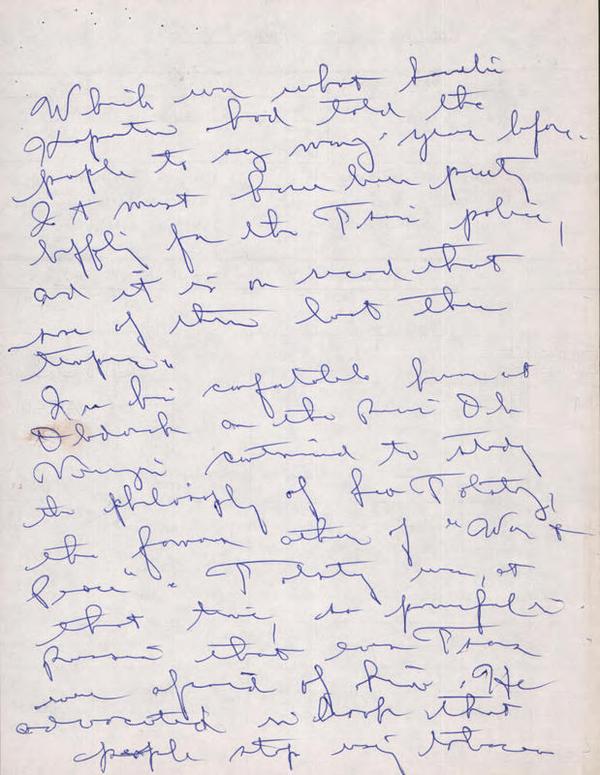 Which was what Savelii
Kapustin had told the
people to say many years before.
It must have been pretty
baffling for the Tsar's police,
and it is on record that
some of them lost their
tempers.
In his comfortable home at
Obdorsk on the River Ob
Verigin continued to study
the philosophy of Leo Tolstoy,
the famous author of "War &
Peace". Tolstoy was, at
that time, so powerful in
Russia that even Tsars
were afraid of him. He
advocated in books that
people stop using tobacco